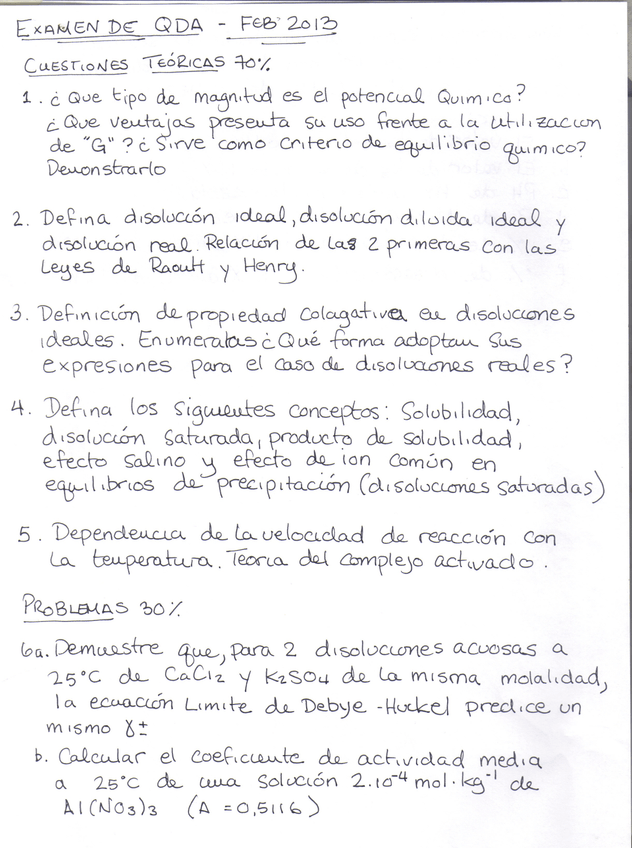 EXAMEN DE QDA - FEB 2013
CUESTIONES TEÓRICAS 70%
1. ¿Que tipo de magnitud es el potencial Quimico?
¿Que ventajas presenta su uso frente a la utilizacion
de "G"? ¿Sirve como criterio de equilibrio quimico?
Demonstrarlo
2. Defina disolución ideal, disolución diluida ideal y
disolución real. Relación de las 2 primeras con las
Leyes de Raoult y Henry.
3. Definición de propiedad colagativa en disoluciones
ideales. Enumeralas ¿Qué forma adoptan sus
expresiones para el caso de disoluciones reales?
4. Defina los siguientes conceptos: Solubilidad,
disolución saturada, producto de solubilidad,
efecto salino y efecto de ion común en
equilibrios de precipitación (disoluciones saturadas)
5. Dependencia de la velocidad de reacción con
la temperatura. Teoria del complejo activado.
PROBLEMAS 30%
6a. Demuestre que, para 2 disoluciones acuosas a
25°C de CaCl2 y K2SO4 de la misma molalidad,
la ecuación Limite de Debye-Huckel predice un
mismo γ±
b. Calcular el coeficiente de actividad media
a 25°C de una solución 2.10⁻⁴ mol.kg⁻¹ de
Al(NO3)3 (A = 0,5116)